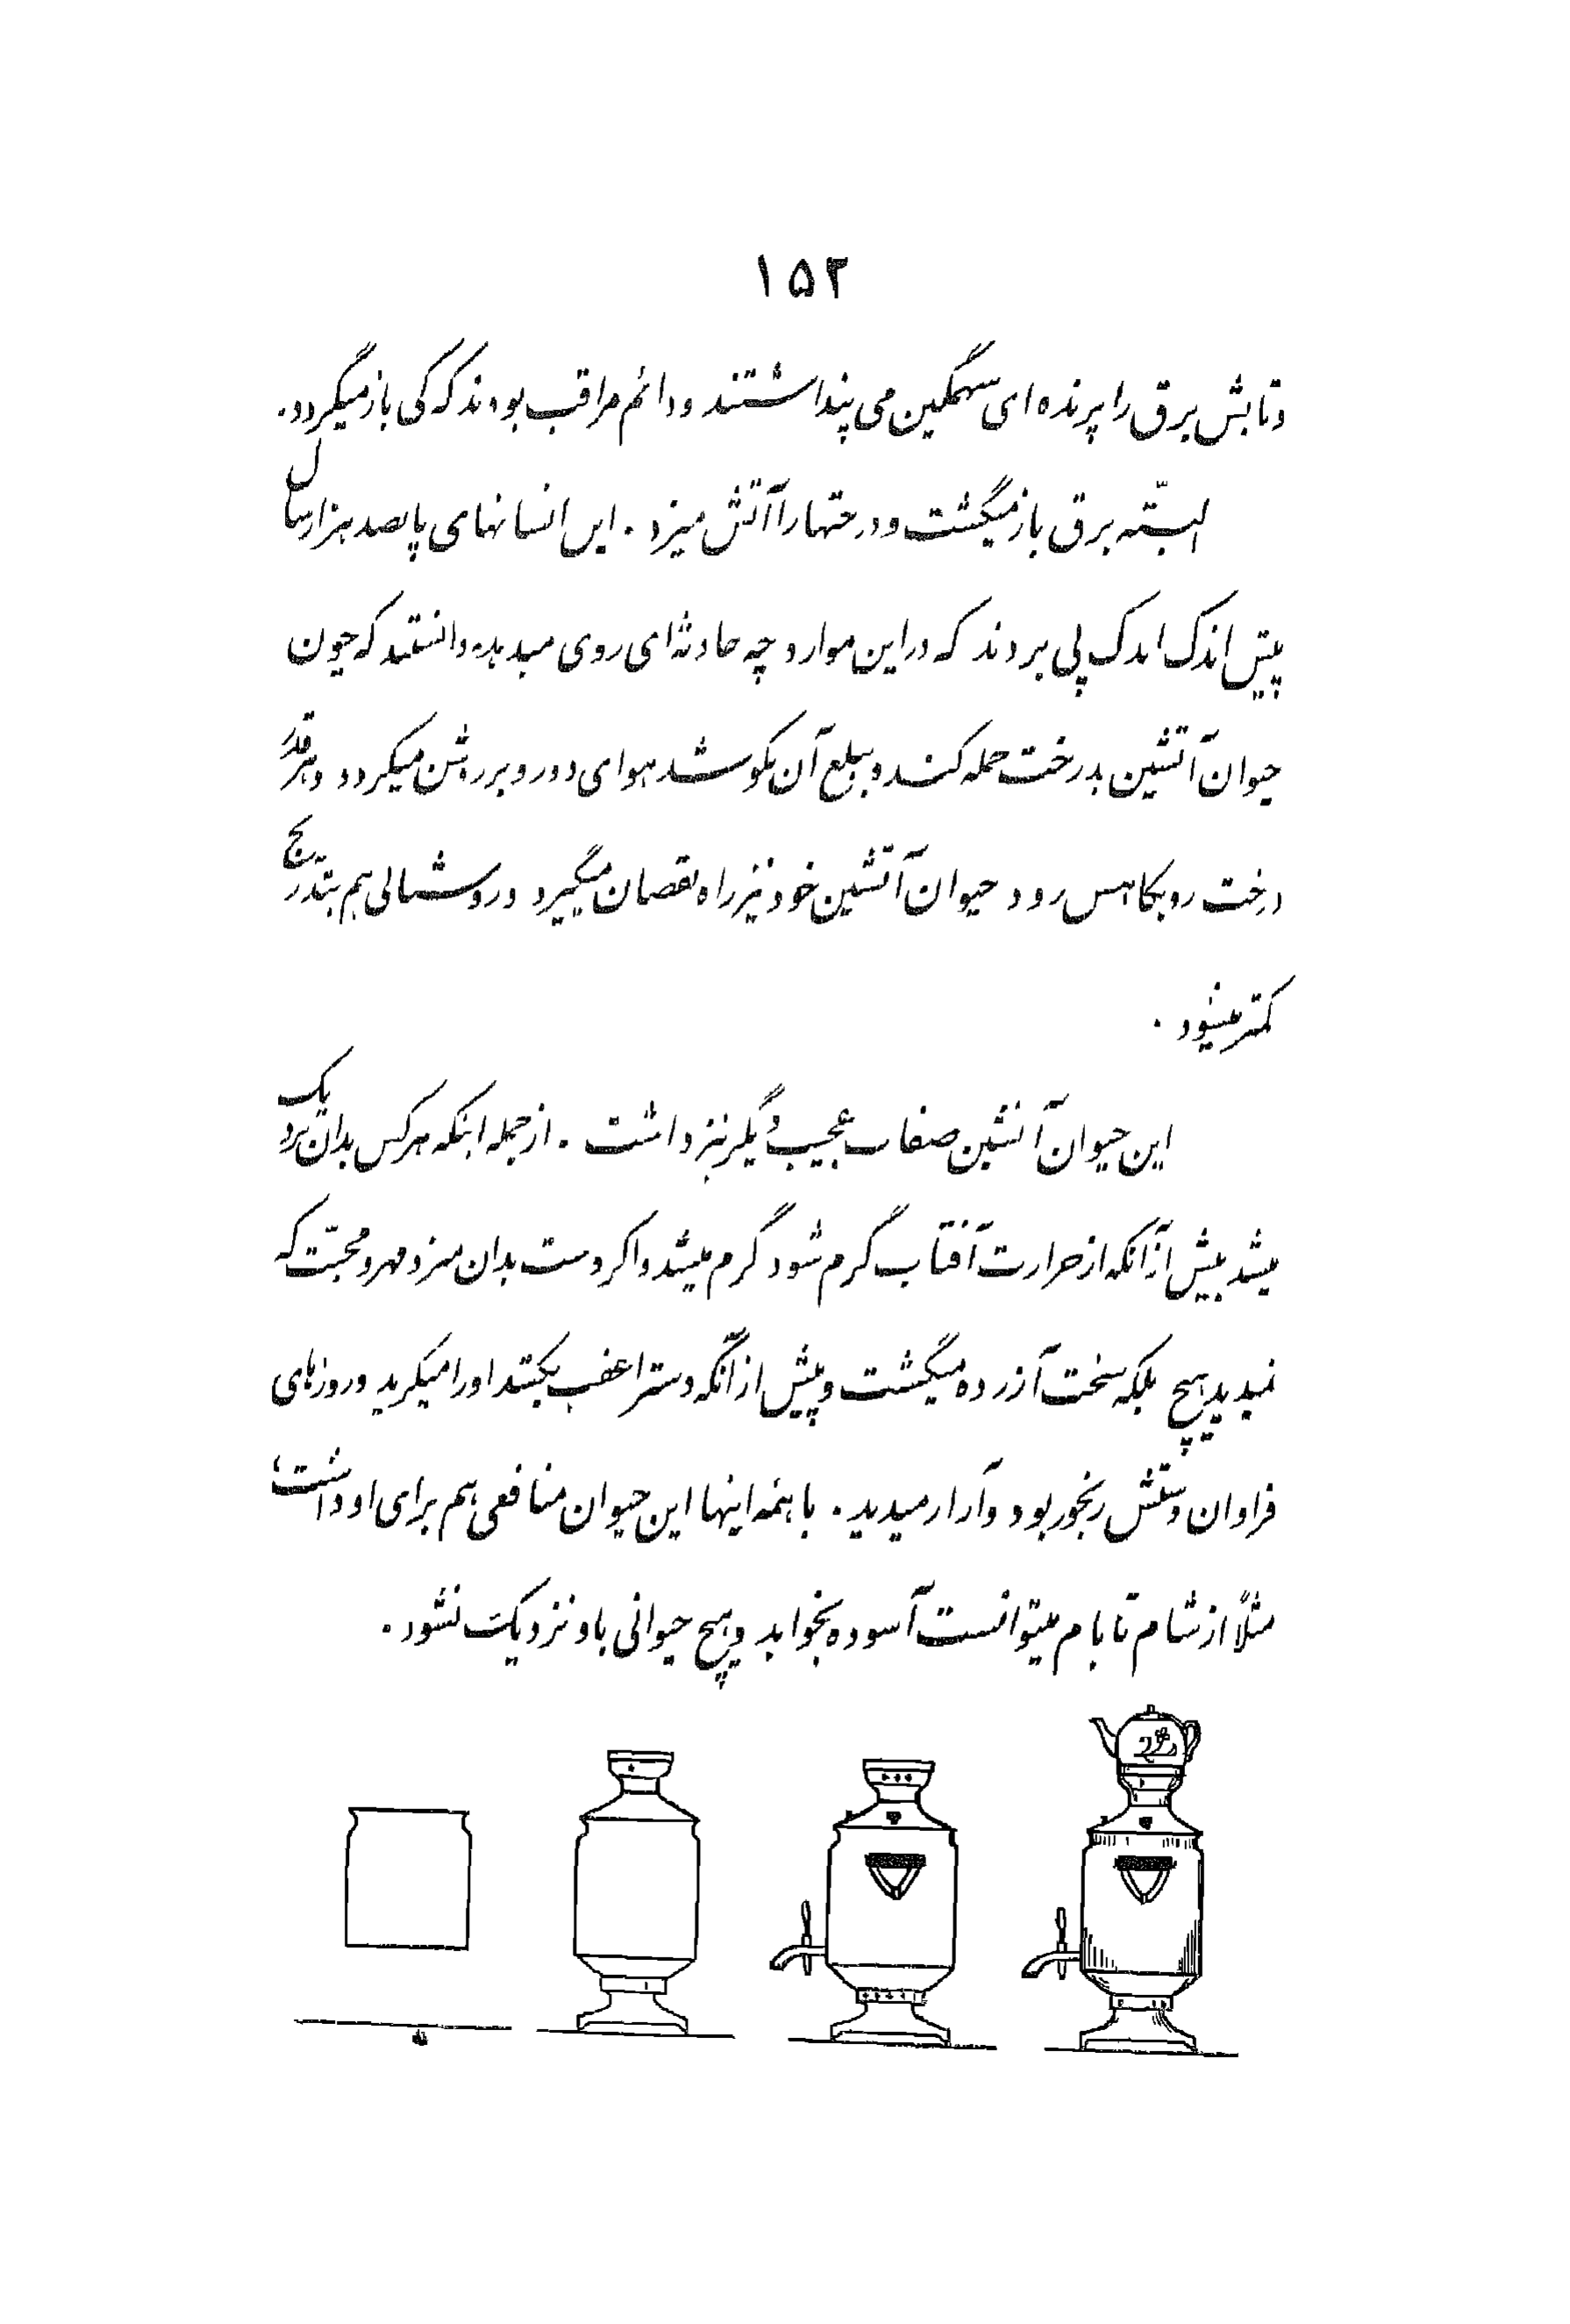 ۱۵۲
وتابش برق را پرنده ای سهمگین می پنداشتند ودائم مراقب بودند که کی بازمیگردد.
البتّه برق بازمیگشت ودرختهارا آتش میزد. این انسانهای پانصد هزارسال
پیش اندک اندک پی بردند که دراین موارد چه حادثه ای روی میدهد و دانستند که چون
حیوان آتشین بدرخت حمله کند و ببلع آن بکوشد هوای دور و بر روشن میگردد وهرقدر
درخت رو بکاهش رود حیوان آتشین خود نیز راه نقصان میگیرد و روشنائی هم بتدریج
کمتر میشود.
این حیوان آتشین صفات عجیب دیگر نیز داشت. ازجمله اینکه هرکس بدان نزدیک
میشد بیش ازآنکه از حرارت آفتاب گرم شود گرم میشد و اگر دست بدان میزد مهر و محبّت که
نمیدید هیچ بلکه سخت آزرده میگشت و پیش از آنکه دستر اعقب بکشد اورا میگزید و روزهای
فراوان دستش رنجور بود و آزار میدید. با همه اینها این حیوان منافعی هم برای او داشت؛
مثلاً از شام تا بام میتوانست آسوده بخوابد و هیچ حیوانی باو نزدیک نشود.